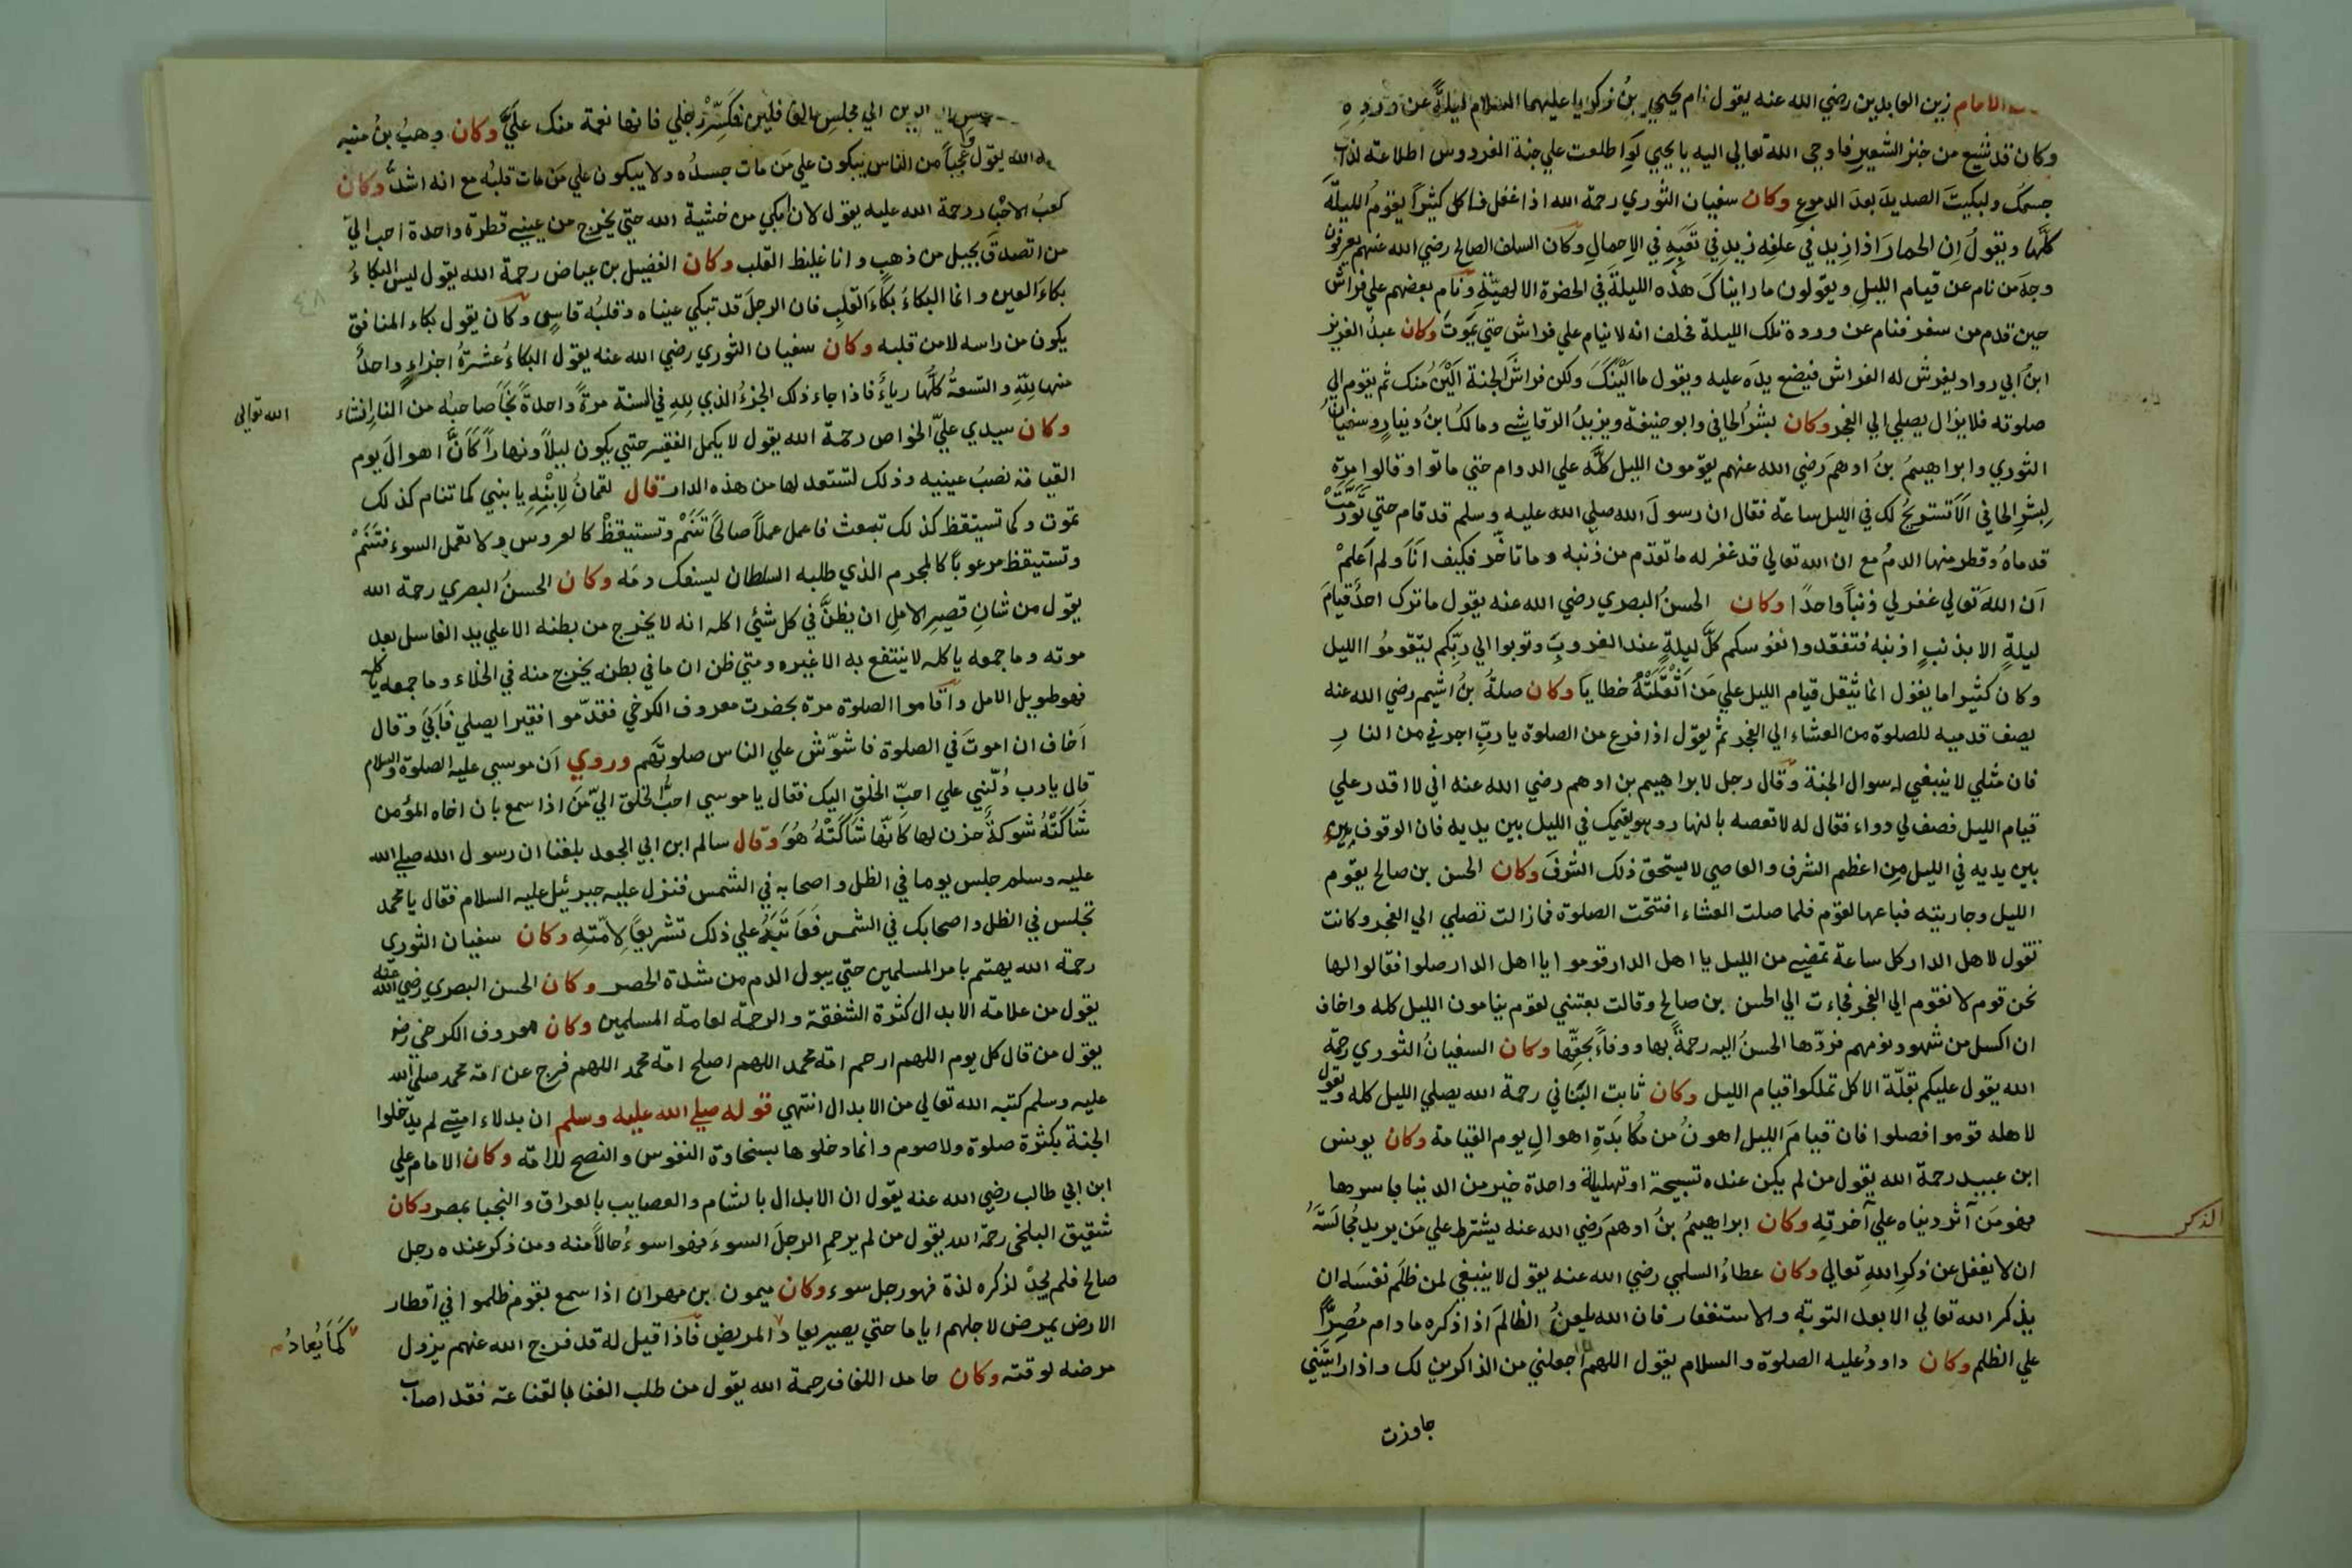 الامام زين العابدين رضي الله عنه يقول نام يحيي بن زكريا عليهما السلام ليلةً عن ورده
وكان قد شبع من خبز الشعير فاوحي الله تعالي اليه يا يحيي لو اطلعت علي جنة الفردوس اطلاعة لذاب
جسمك ولبكيت الصديد بعد الدموع وكان سفيان الثوري رحمة الله اذا غفل فاكل كثيرًا يقوم الليلة
كلَّها ويقول اِن الحمارَ اذا زيد في علفه زيد في تعبِهِ في الاِحمالِ وكان السلف الصالح رضي الله عنهم يعرفون
وجهَ من نام عن قيام الليل ويقولون ما رايناكَ هذه الليلةَ في الحضرة الالهيّةِ ونام بعضهم علي فراش
حين قدم من سفر فنام عن وردة تلك الليلة فحلف انه لا ينام علي فراش حتي يموتَ وكان عبدُ العزيز
ابنُ ابي رواد يفرش له الفراش فيضع يدَه عليه ويقول ما اَلْيَنَكَ ولكن فراشَ الجنة اَلْيَنُ منك ثم يقوم الي
صلوته فلا يزال يصلي الي الفجر وكان بشرُ الحافي وابو حنيفة ويزيدُ الرقاشي ومالكُ بنُ دينارٍ وسفيانُ
الثوري وابراهيمُ بنُ ادهمَ رضي الله عنهم يقومون الليل كلَّه علي الدوام حتي ماتوا وقالوا مرة
لِبِشرِ الحافي اَلَا تستريحُ لك في الليل ساعة فقال ان رسولَ الله صلي الله عليه وسلم قد قام حتي تورَّمَتْ
قدماهُ وقطر منها الدمُ مع ان الله تعالي قد غفر له ما تقدّم من ذنبه وما تاخّر فكيف اَنَا ولم اَعلمْ
اَن اللهَ تعالي غفر لي ذنبًا واحدًا وكان الحسنُ البصري رضي الله عنه يقول ما ترك احدٌ قيامَ
ليلةٍ الا بذنبٍ اذنبه فتفقدوا نفوسكم كلَّ ليلةٍ عند الغروبِ وتوبوا الي ربِّكم ليتقوموُا الليل
وكان كثيرا ما يقول انما يثقل قيام الليل علي مَن اَثْقَلَتْهُ خطايَا وكان صلةُ بنُ اشيم رضي الله عنه
يصف قدميه للصلوة من العشاء الي الفجر ثم يقول اذا فرغ من الصلوة يا ربِّ اجرني من النارِ
فان مثلي لا ينبغي له سوال الجنة وقال رجل لابراهيم بن ادهم رضي الله عنه اني لا اقدر علي
قيام الليل فصف لي دواء فقال له لا تعصه بالنهار وهو يقيمك في الليل بين يديه فان الوقوف
بين يديه في الليل مِن اعظم الشرف والعاصي لا يستحق ذلك الشرفَ وكان الحسن بن صالح يقوم
الليل وجاريته فباعها لقوم فلما صلت العشاء افتتحت الصلوة فما زالت تصلي الي الفجر وكانت
تقول لاهل الدار كل ساعة تمضي من الليل يا اهل الدار قوموا يا اهل الدار صلوا فقالوا لها
نحن قوم لا نقوم الي الفجر فجاءت الي الحسن بن صالح وقالت بعتني لقوم ينامون الليل كله واخاف
ان اكسل من شهود نومهم فردّها الحسنُ اليه رحمةً بها ووفاءً بحقِّها وكان السفيانُ الثوري رحمة
الله يقول عليكم بقلّة الاكل تملكوا قيام الليل وكان ثابت البناني رحمة الله يصلي الليل كله ويقول
لاهله قوموا فصلوا فان قيامَ الليل اهونُ من مُكابَدَةِ اهوالِ يوم القيامة وكان يونس
ابن عبيد رحمة الله يقول من لم يكن عنده تسبيحة او تهليلة واحدة خير من الدنيا باسرها
فهو مَن آثر دنياه علي آخرتِه وكان ابراهيمُ بنُ ادهمَ رضي الله عنه يشترط علي مَن يريد مُجالَسَتَه
ان لا يغفل عن ذكرِ اللهِ تعالي وكان عطاءُ السلمي رضي الله عنه يقول لا ينبغي لمن ظلَم نفسَه ان
يذكر الله تعالي الا بعد التوبة والاستغفار فان الله يلعنُ الظالمَ اذا ذكره ما دام مُصِرًّا
علي الظلم وكان داودُ عليه الصلوة والسلام يقول اللهم اجعلني من الذاكرين لك واذا رايتني
جاوزت
الذكر
الي مجلس الغافلين فكَسِّرْ رِجلي فانها نعمة منك عليَّ وكان وهبُ بنُ منبه
الله يقول وا عجبًا من الناس يبكون علي مَن مات جسدُه ولا يبكون علي مَن مات قلبُه مع انه اشدُّ وكان
كعبُ الاحبار رحمة الله عليه يقول لان ابكي من خشية الله حتي يخرج من عيني قطرة واحدة احب اليّ
من اتصدقَ بجبل من ذهب وانا غليظ القلب وكان الفضيل بن عياض رحمة الله يقول ليس البكاءُ
بكاءَ العين وانما البكاءُ بكاءَ القلبِ فان الرجلَ قد تبكي عيناه وقلبُه قاسٍي وكان يقول بكاء المنافق
يكون من راسه لا من قلبه وكان سفيان الثوري رضي الله عنه يقول البكاءُ عشرةُ اجزاءٍ واحدٌ
منها لِلّهِ والتسعةُ كلُّها رياءٌ فاذا جاء ذلك الجزءُ الذي لِلهِ في السنة مرةً واحدةً نجَا صاحبُه من النار انشاء
الله تعالي
وكان سيدي عليّ الخواص رحمة الله يقول لا يكمل الفقير حتي يكون ليلًا ونهارًا كَاَنَّ اهوالَ يوم
القيامة نصبُ عينيه وذلك لتستعد لها من هذه الدار قال لقمانُ لِابْنِهِ يا بني كما تنام كذلك
تموت وكما تستيقظ كذلك تبعث فاعمل عملًا صالحًا تَنَمْ وتستيقظْ كالعروس ولا تعمل السوء فتَنَمْ
وتستيقظ مرعوبًا كالمجرم الذي طلبه السلطان ليسفك دمَه وكان الحسنُ البصري رحمة الله
يقول من شانِ قصيرِ الاملِ ان يظنَّ في كل شيئ اكله انه لا يخرج من بطنه الا علي يد الغاسل بعد
موته وما جمعه ياكله لا ينتفع به الا غيره ومتي ظن ان ما في بطنه يخرج منه في الخلاء وما جمعه ياكله
فهو طويل الامل واقاموا الصلوة مرة بحضرت معروف الكرخي فقدّموا فقيرا يصلي فاَبَيَ وقال
اَخاف ان اموتَ في الصلوة فاشوّش علي الناس صلوتَهم وروي اَن موسي عليه الصلوة والسلام
قال يا رب دُلَّنِي علي احبِّ الخلقِ اليك فقال يا موسي احبُّ الخلق اليّ مَن اذا سمع بان اخاه المؤمن
شَاكَتْهُ شوكةٌ حزن لها كاَنّها شَاكَتْهُ هُوَ وقال سالم ابن ابي الجعد بلغنا ان رسول الله صلي الله
عليه وسلم جلس يوما في الظل واصحابه في الشمس فنزل عليه جبرئيل عليه السلام فقال يا محمد
تجلس في الظل واصحابك في الشمس فعاتَبَهُ علي ذلك تشريعًا لِامّتِه وكان سفيان الثوري
رحمة الله يهتم بامر المسلمين حتي يبول الدم من شدة الحصر وكان الحسن البصري رضي الله عنه
يقول من علامة الابدال كثرة الشفقة والرحمة لعامة المسلمين وكان معروف الكرخي رض
يقول من قال كل يوم اللهم ارحم امة محمد اللهم اصلح امة محمد اللهم فرج عن امة محمد صلي الله
عليه وسلم كتبه الله تعالي من الابدال انتهي قوله صلي الله عليه وسلم ان بدلاء امتي لم يدخلوا
الجنة بكثرة صلوة ولا صوم وانما دخلوها بسخاوة النفوس والنصح للامة وكان الامام علي
ابن ابي طالب رضي الله عنه يقول ان الابدال بالشام والعصايب بالعراق والنجبا بمصر وكان
شقيق البلخي رحمة الله يقول من لم يرحمِ الرجلَ السوءَ فهوا سوءُ حالاً منه ومن ذكر عنده رجل
صالح فلم يجدْ لذكره لذة فهو رجل سوء وكان ميمون بن مهران اذا سمع بقوم ظلموا في اقطار
الارض يمرض لاجلهم اياما حتي يصير يعاد المريض فاذا قيل له قد فرج الله عنهم يزول
كَمَا يُعادُ
مرضه لوقته وكان حامد اللفاف رحمة الله يقول من طلب الغنا بالقناعة فقد اصاب